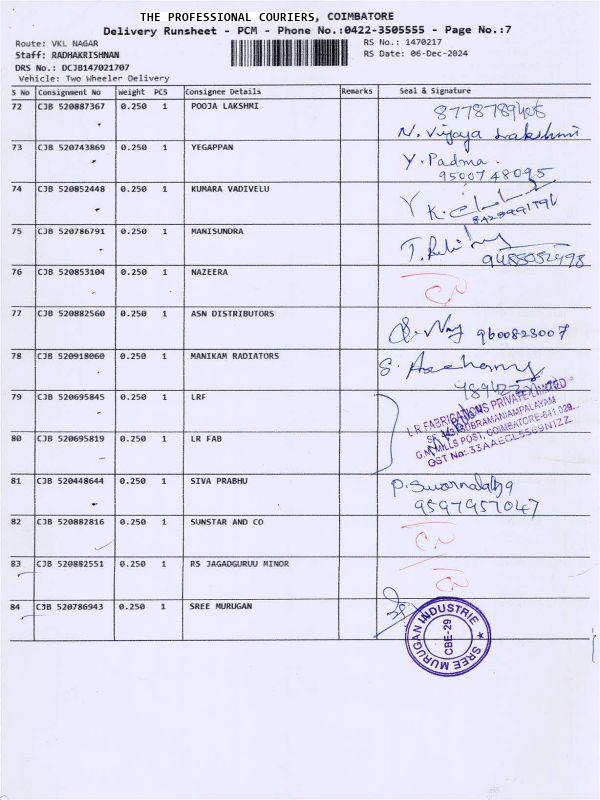 THE PROFESSIONAL COURIERS, COIMBATORE
Delivery Runsheet - PCM - Phone No.:0422-3505555 - Page No.:7
Route: VKL NAGAR
RS No.: 1470217
Staff: RADHAKRISHNAN
RS Date: 06-Dec-2024
DRS No.: DCJB147021707
Vehicle: Two Wheeler Delivery
S No Consignment No Weight PCS Consignee Details Remarks Seal & Signature
72 CJB 520887367 0.250 1 POOJA LAKSHMI
N. Vijaya Lakshmi
73 CJB 520743869 0.250 1 YEGAPPAN Y. Padma.
9500748095
74 CJB 520852448 0.250 1 KUMARA VADIVELU
75 CJB 520786791 0.250 1 MANISUNDRA
9488052498
76 CJB 520853104 0.250 1 NAZEERA
77 CJB 520882560 0.250 1 ASN DISTRIBUTORS
9600823007
78 CJB 520918060 0.250 1 MANIKAM RADIATORS
79 CJB 520695845 0.250 1 LRF
L R FABRICATIONS PRIVATE LIMITED
80 CJB 520695819 0.250 1 LR FAB
MILLS POST, COIMBATORE-641 029.
GST No: 33AAECL5569N1ZZ
81 CJB 520448644 0.250 1 SIVA PRABHU P. Swarnalatha
9597957047
82 CJB 520882816 0.250 1 SUNSTAR AND CO
83 CJB 520882551 0.250 1 RS JAGADGURUU MINOR
84 CJB 520786943 0.250 1 SREE MURUGAN
SREE MURUGAN INDUSTRIE
CBE-29